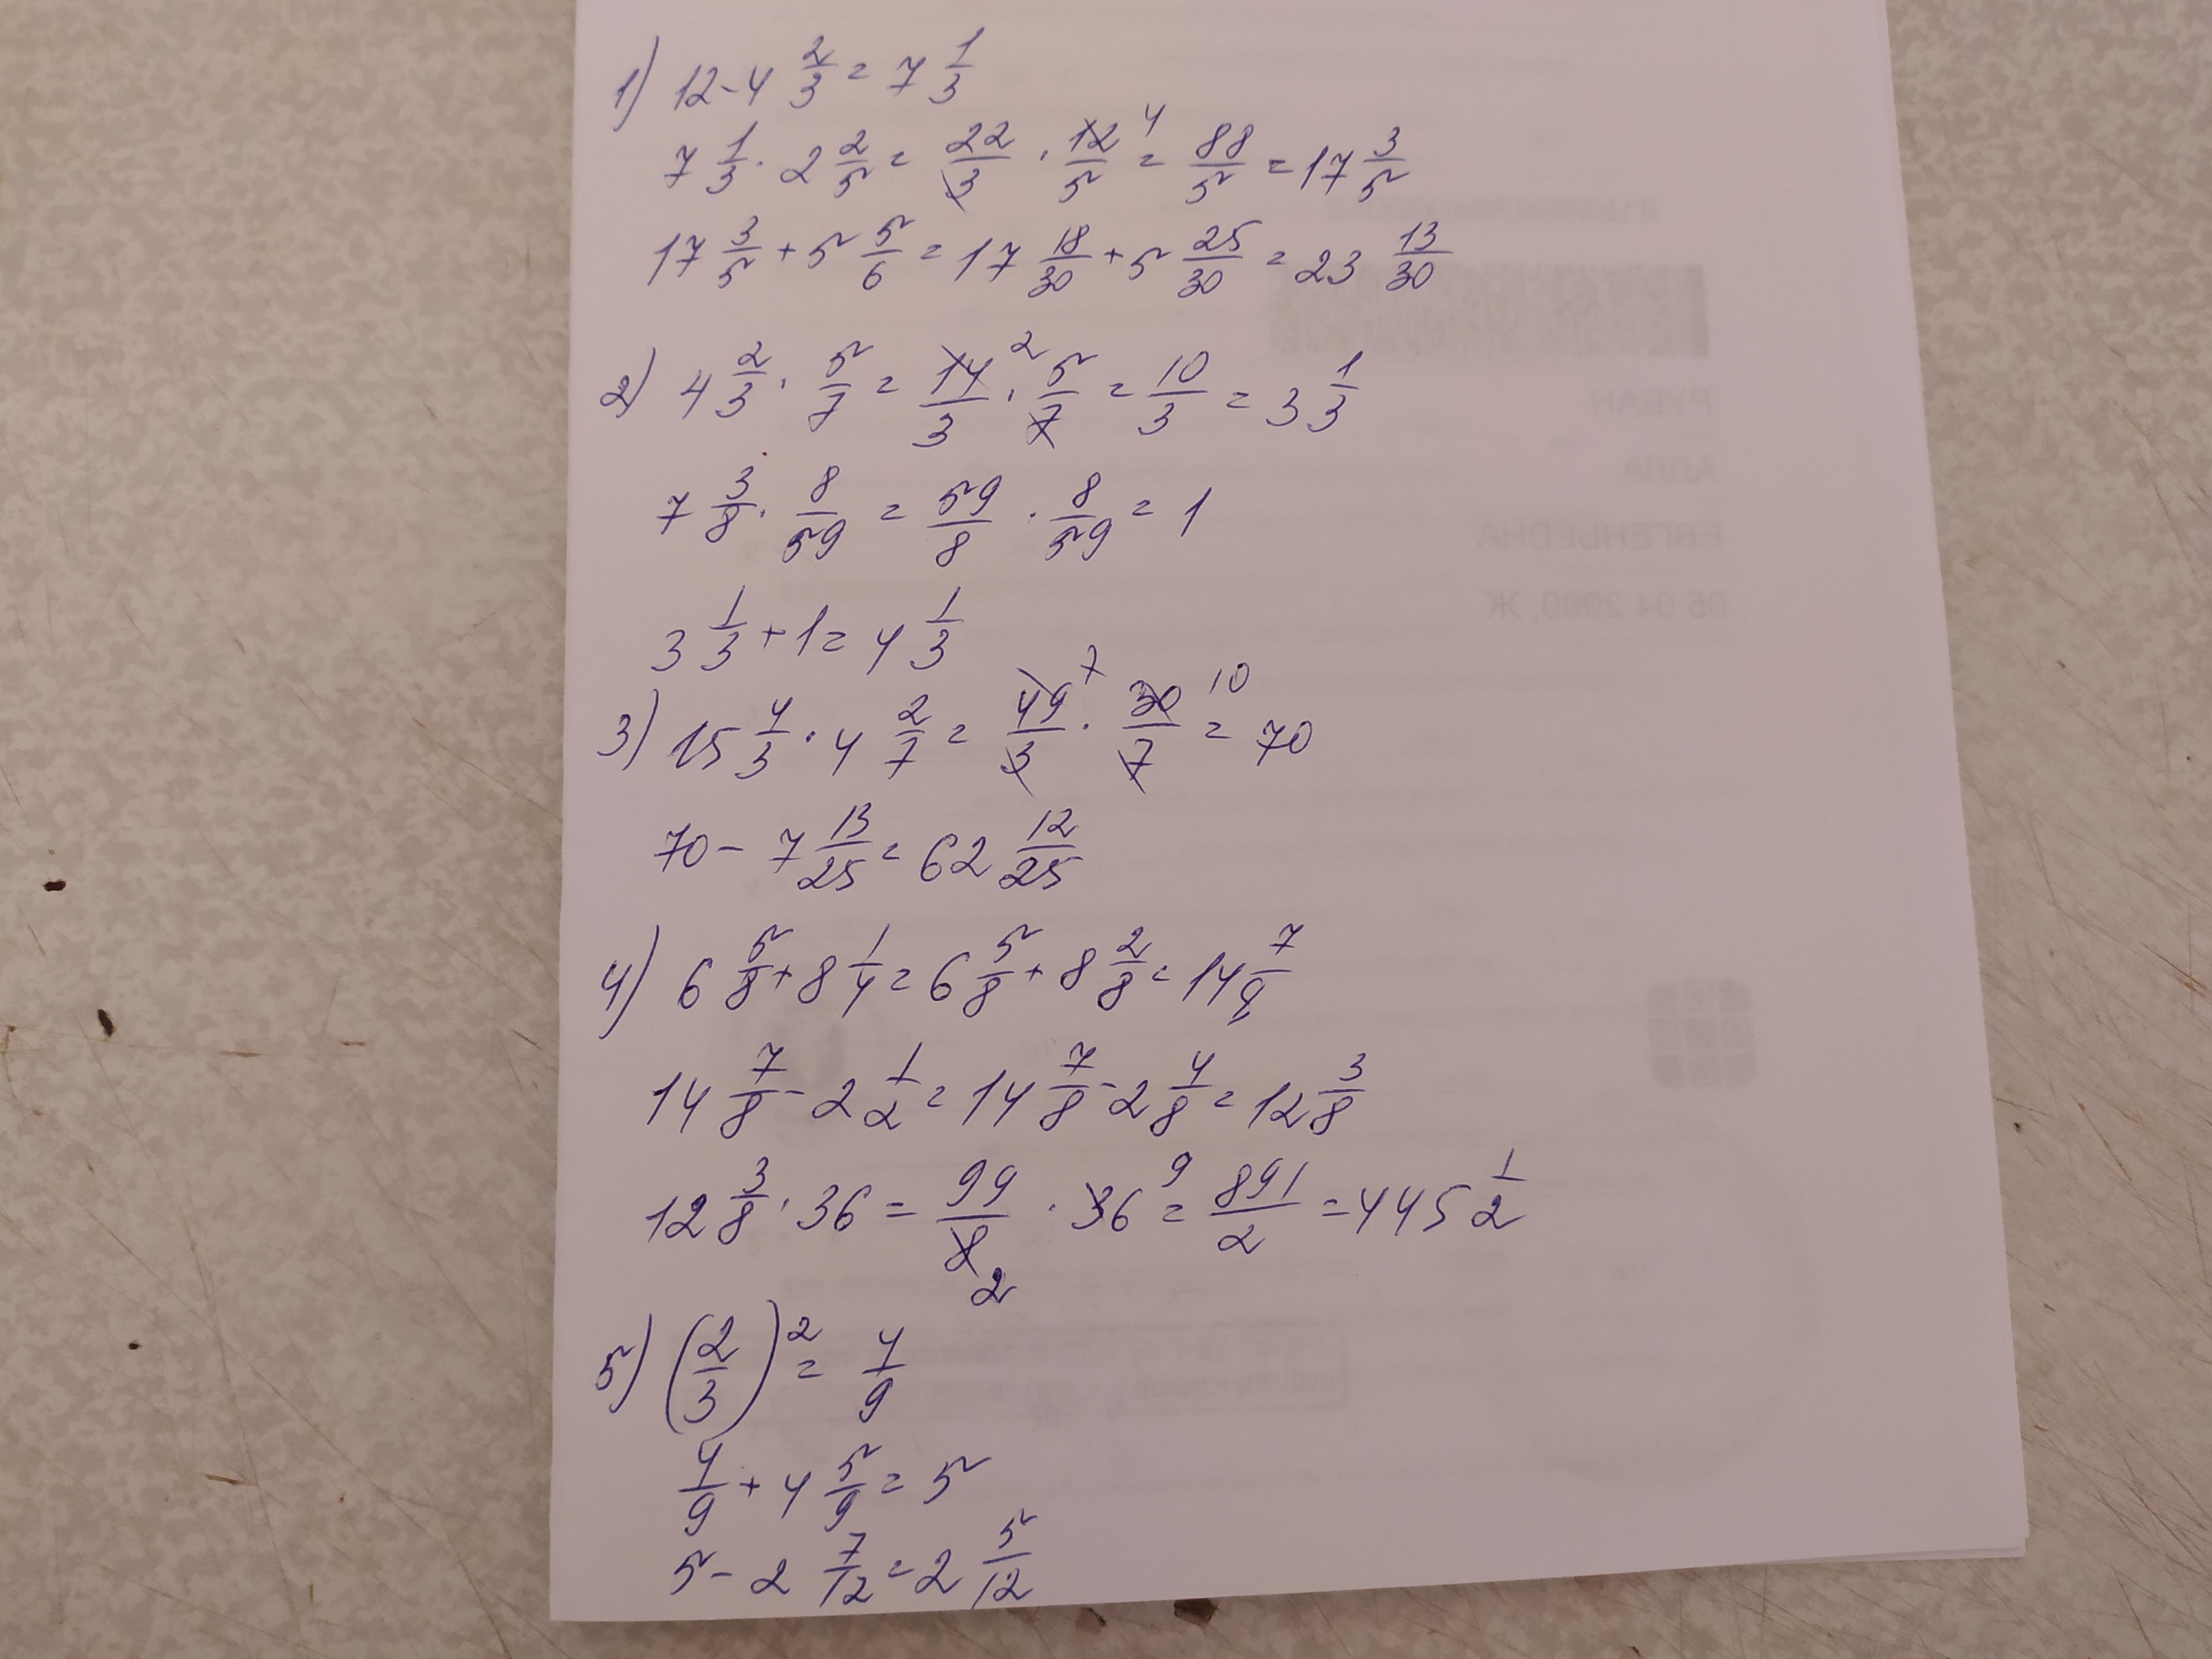 1) 12 - 4 2/3 = 7 1/3
7 1/3 · 2 2/5 = 22/3 · 12/5 4 = 88/5 = 17 3/5
17 3/5 + 5 5/6 = 17 18/30 + 5 25/30 = 23 13/30
2) 4 2/3 · 5/7 = 14/3 2 · 5/7 = 10/3 = 3 1/3
7 3/8 · 8/59 = 59/8 · 8/59 = 1
3 1/3 + 1 = 4 1/3
3) 15 4/3 · 4 2/7 = 49/3 7 · 30/7 10 = 70
70 - 7 13/25 = 62 12/25
4) 6 5/8 + 8 1/4 = 6 5/8 + 8 2/8 = 14 7/8
14 7/8 - 2 1/2 = 14 7/8 - 2 4/8 = 12 3/8
12 3/8 · 36 = 99/8 2 · 36 9 = 891/2 = 445 1/2
5) (2/3)² = 4/9
4/9 + 4 5/9 = 5
5 - 2 7/12 = 2 5/12
РУБАН
АЛЛА
ЕВГЕНЬЕВНА